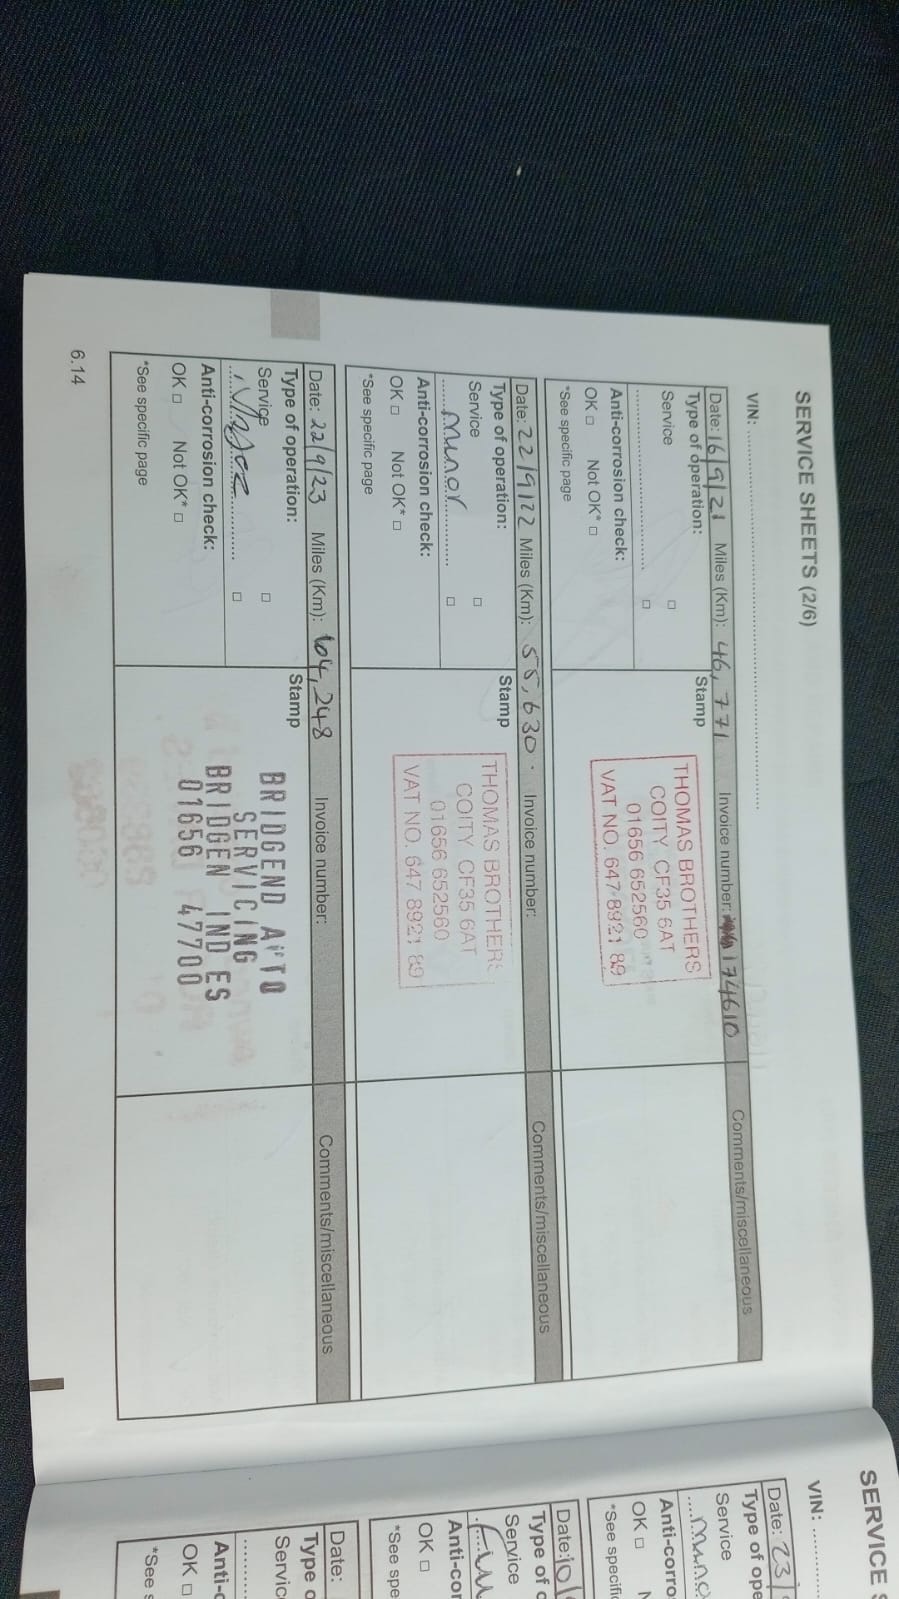 SERVICE SHEETS (2/6)
VIN:
Date: 16/9/21 Miles (Km): 46,771 Invoice number: 174610 Comments/miscellaneous
Type of operation: Stamp
Service
THOMAS BROTHERS
COITY CF35 6AT
01656 652560
VAT NO. 647 8921 89
Anti-corrosion check:
OK □ Not OK* □
*See specific page
Date: 22/9/22 Miles (Km): 55,630. Invoice number: Comments/miscellaneous
Type of operation: Stamp
Service
minor
THOMAS BROTHERS
COITY CF35 6AT
01656 652560
VAT NO. 647 8921 89
Anti-corrosion check:
OK □ Not OK* □
*See specific page
Date: 22/9/23 Miles (Km): 104,248 Invoice number: Comments/miscellaneous
Type of operation: Stamp
Service
BRIDGEND AUTO
SERVICING
BRIDGEN IND ES
01656 47700
Anti-corrosion check:
OK □ Not OK* □
*See specific page
6.14
SERVICE S
VIN:
Date: 23/
Type of ope
Service
mino
Anti-corro
OK □ N
*See specific
Date: 10/
Type of o
Service
Anti-cor
OK □
*See spe
Date:
Type o
Servic
Anti-c
OK □
*See s